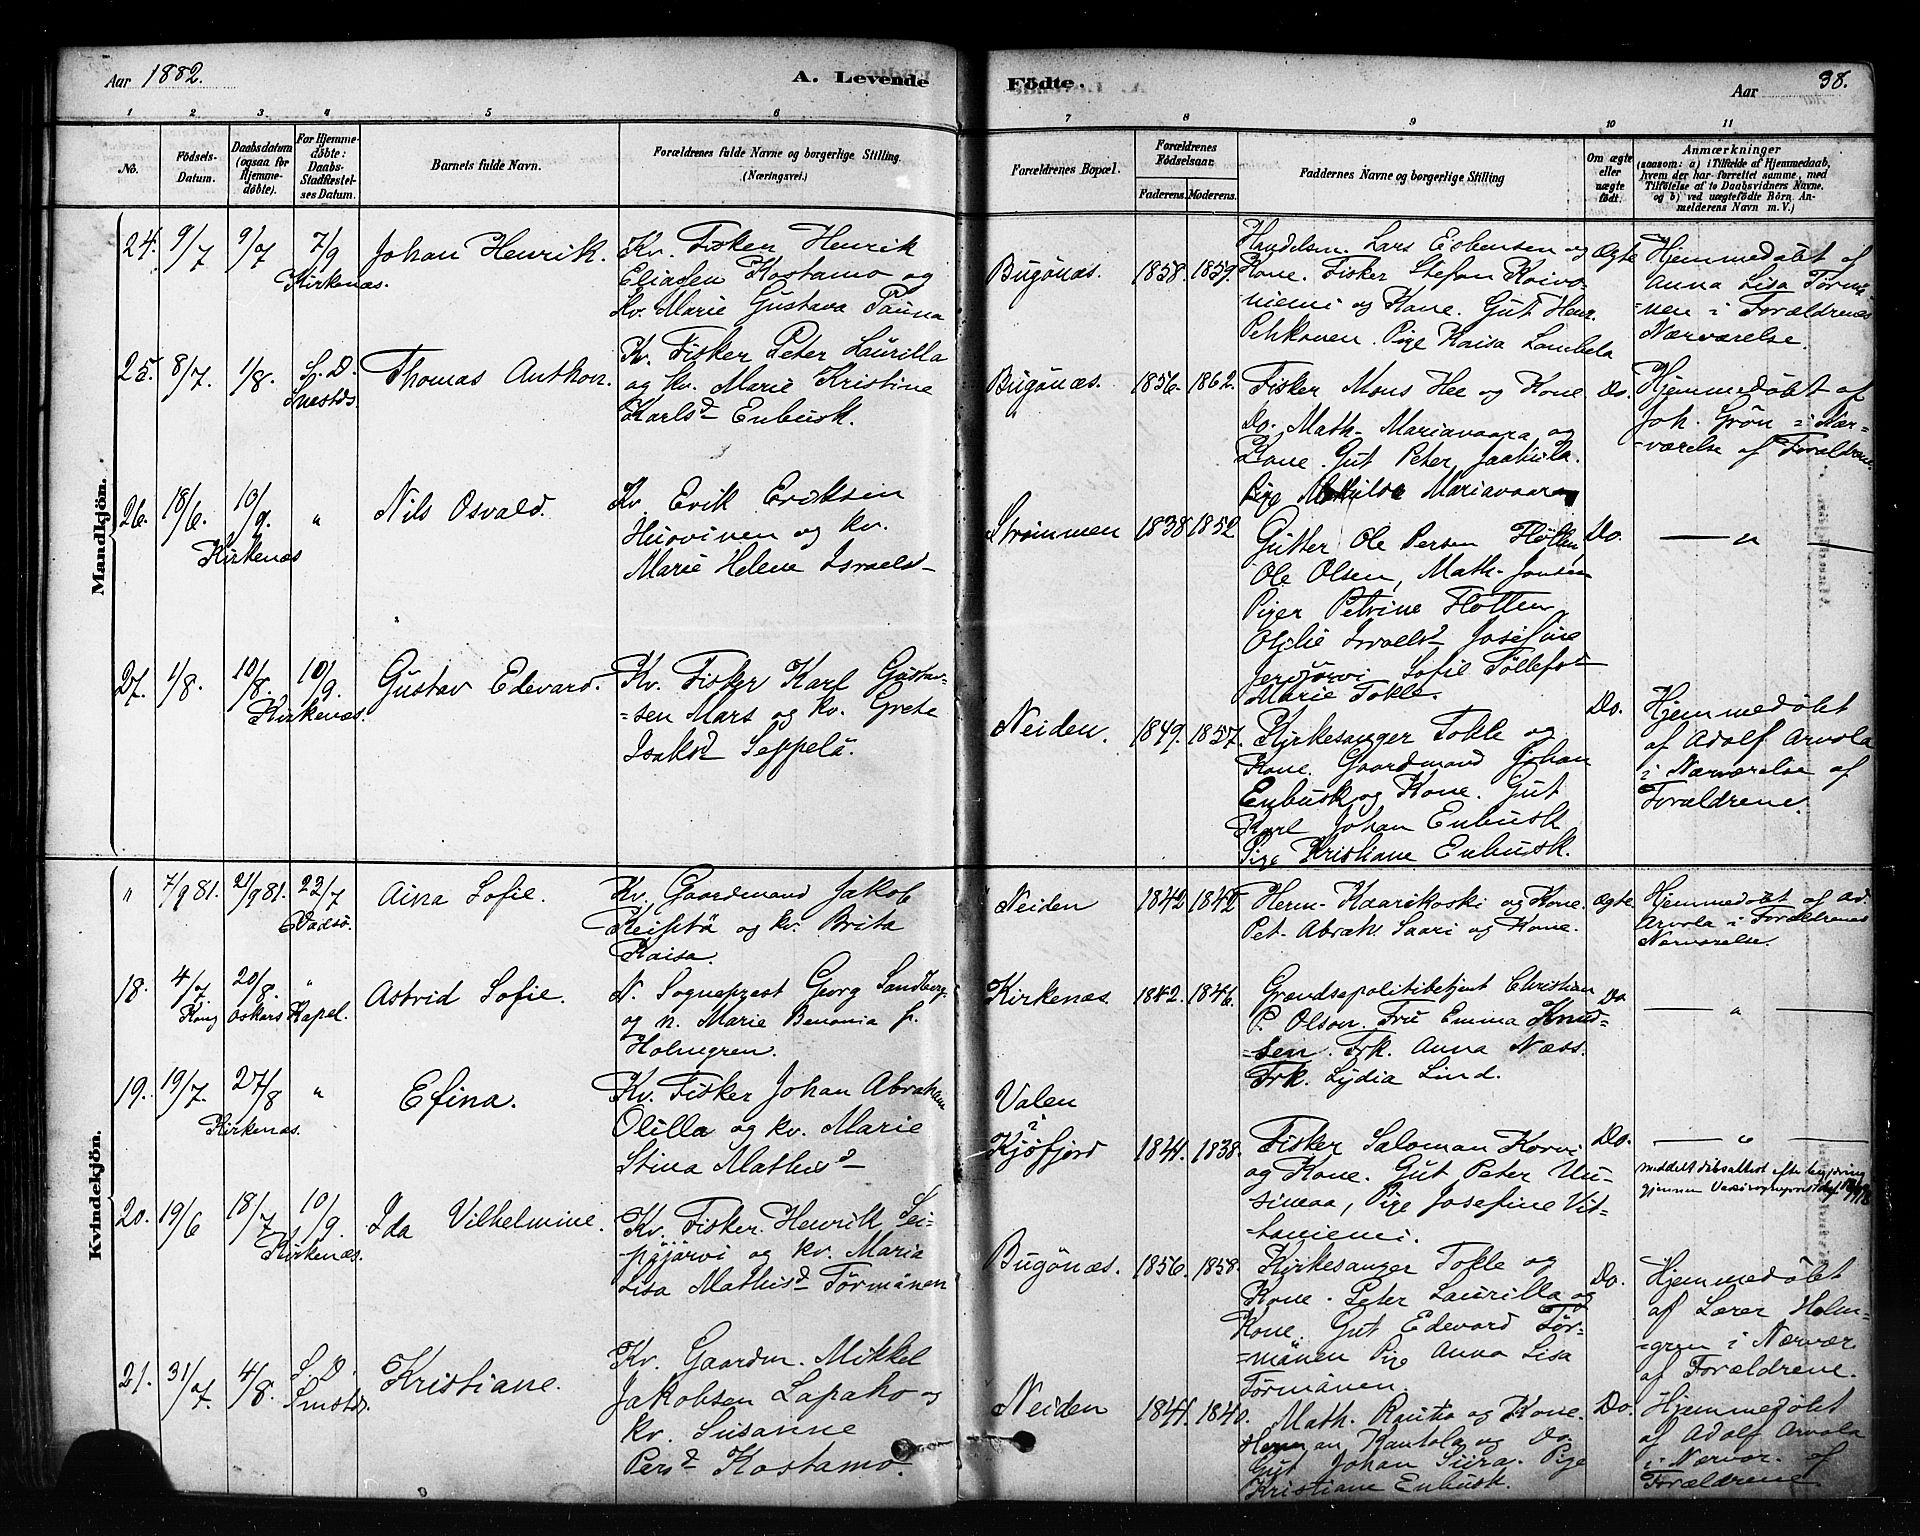 Aar 1882.
A. Levende
Födte.
Aar 38.
1 2 3. 4 5 6 7 8 9 10 11
No.
Födsels-Datum.
Daabsdatum (ogsaa for Hjemmedöbte).
For Hjemmedöbte: Daabs-Stadfæstelses Datum.
Barnets fulde Navn.
Forældrenes fulde Navne og borgerlige Stilling. (Næringsvei.)
Forældrenes Bopæl.
Forældrenes Födselsaar.
Faderens. Moderens.
Faddernes Navne og borgerlige Stilling
Om ægte eller uægte födt.
Anmærkninger
(saasom: a) i Tilfælde af Hjemmedaab, hvem der har forrettet samme, med Tilföielse af to Daabsvidners Navne. og b) ved uægtefödte Börn Anmelderens Navn m. V.)
Mandkjön.
24. 9/7 9/7 7/9 Kirkenæs.
Johan Henrik.
Kv. Fisker Henrik
Eliasen Kostamo og
Kv. Marie Gustava Pauna
Bugönæs. 1858. 1859.
Handelsm. Lars Esbensen og
Kone. Fisker Stefan Koivo-
niemi og Kone. Gut Henr.
Pehkonen. Pige Kaisa Lambela
Ægte
Hjemmedöbt af
Anna Lisa Törmä-
nen i Forældrenes
Nærværelse.
25. 8/7. 1/8. S. D.
Thomas Anthon.
Kv. Fisker Peter Laurilla
og kv. Marie Kristine
Karlsd Enbusk.
Bugönæs. 1856. 1862.
Fisker Mons Hee og Kone
Do. Math. Mariavaara og
Kone. Gut Peter
Pige Mariavaara
Do.
Hjemmedöbt af
Joh. Grön i Nær-
værelse af Forældrene
26. 18/6. 10/9. "
Kirkenæs
Nils Osvald.
Kv. Erik Eriksen
Huovinen og kv.
Marie Helene Israelsd
Strömmen 1838 1852
Gutter Ole Persen Flotten
Ole Olsen, Math. Jonsen
Piger Petrine Flotten
Israelsd Josefine
Sofie
Marie Tokle.
Do. — " —
27. 1/8. 10/8. 10/9.
Kirkenæs.
Gustav Edevard.
Kv. Fisker Karl Gustav-
sen Mars og kv. Grete
Isaksd Seppelä.
Neiden. 1849. 1857.
Kirkesanger Tokle og
Kone. Gaardmand Johan
Enbusk og Kone. Gut
Karl Johan Enbusk
Pige Kristiane Enbusk.
Do.
Hjemmedöbt
af Adolf Arvola
i Nærværelse af
Forældrene.
Kvindekjön.
" 7/9 81. 21/9 81. 22/7 Vadsö.
Aina Sofie.
Kv. Gaardmand Jakob
og kv. Brita
Kaisa.
Neiden 1842 1842
Herm. Kaarikoski og Kone.
Pet. Abrah. Saari og Kone.
Ægte.
Hjemmedöbt af Ad.
Arvola i Forældrenes
Nærværelse.
18. 4/7 20/8. "
Kong Oskars Kapel.
Astrid Sofie.
N. Sogneprest Georg Sandberg
og n. Marie Benonia f.
Holmgren.
Kirkenæs. 1842. 1846.
Grændsepolitibetjent Christian
P. Olsen. Fru Emma Knud-
sen. Frk. Anna Næss.
Frk. Lydia Lind.
Do. — " —
19. 19/7. 27/8 "
Kirkenæs.
Efina.
Kv. Fisker Johan Abraham
Olilla og kv. Marie
Stina Mathisd
Valen
i
Kjöfjord 1841. 1838.
Fisker Saloman Korvi
og Kone. Gut Peter Uu-
simaa, Pige Josefine Vit-
taniemi.
Do. — " —
20. 19/6 18/7 10/9.
Kirkenæs.
Ida Vilhelmine.
Kv. Fisker Henrik Sei-
pajärvi og kv. Maria
Lisa Mathisd Törmänen
Bugönæs. 1856. 1858.
Kirkesanger Tokle og
Kone. Peter Laurilla og
Kone. Gut Edevard Tör-
mänen Pige Anna Lisa
Törmänen.
Do.
Hjemmedöbt
af Lærer Holm-
gren i Nærvær
af Forældrene.
21. 31/7 4/8. S. D.
Kristiane.
Kv. Gaardm. Mikkel
Jakobsen Lapaho og
kv. Susanne
Persd Kostamo.
Neiden 1841. 1840.
Math. Rautio og Kone.
Herman Kantola og Do.
Gut Johan Siira. Pige
Kristiane Enbusk.
Do.
Hjemmedöbt
af Adolf Arvola
i Nærvær. af
Forældrene